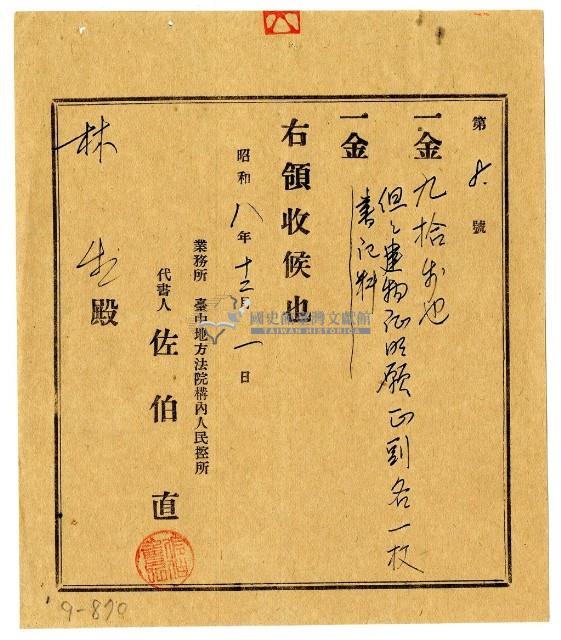 第 号
一金 九拾銭也
但シ建物証明願正副各一枚
書記料
一金
右領收候也
昭和八年十二月一日
業務所 臺中地方法院構內人民控所
代書人 佐伯直
林 殿
國史館臺灣文獻館
TAIWAN HISTORICA
9-870